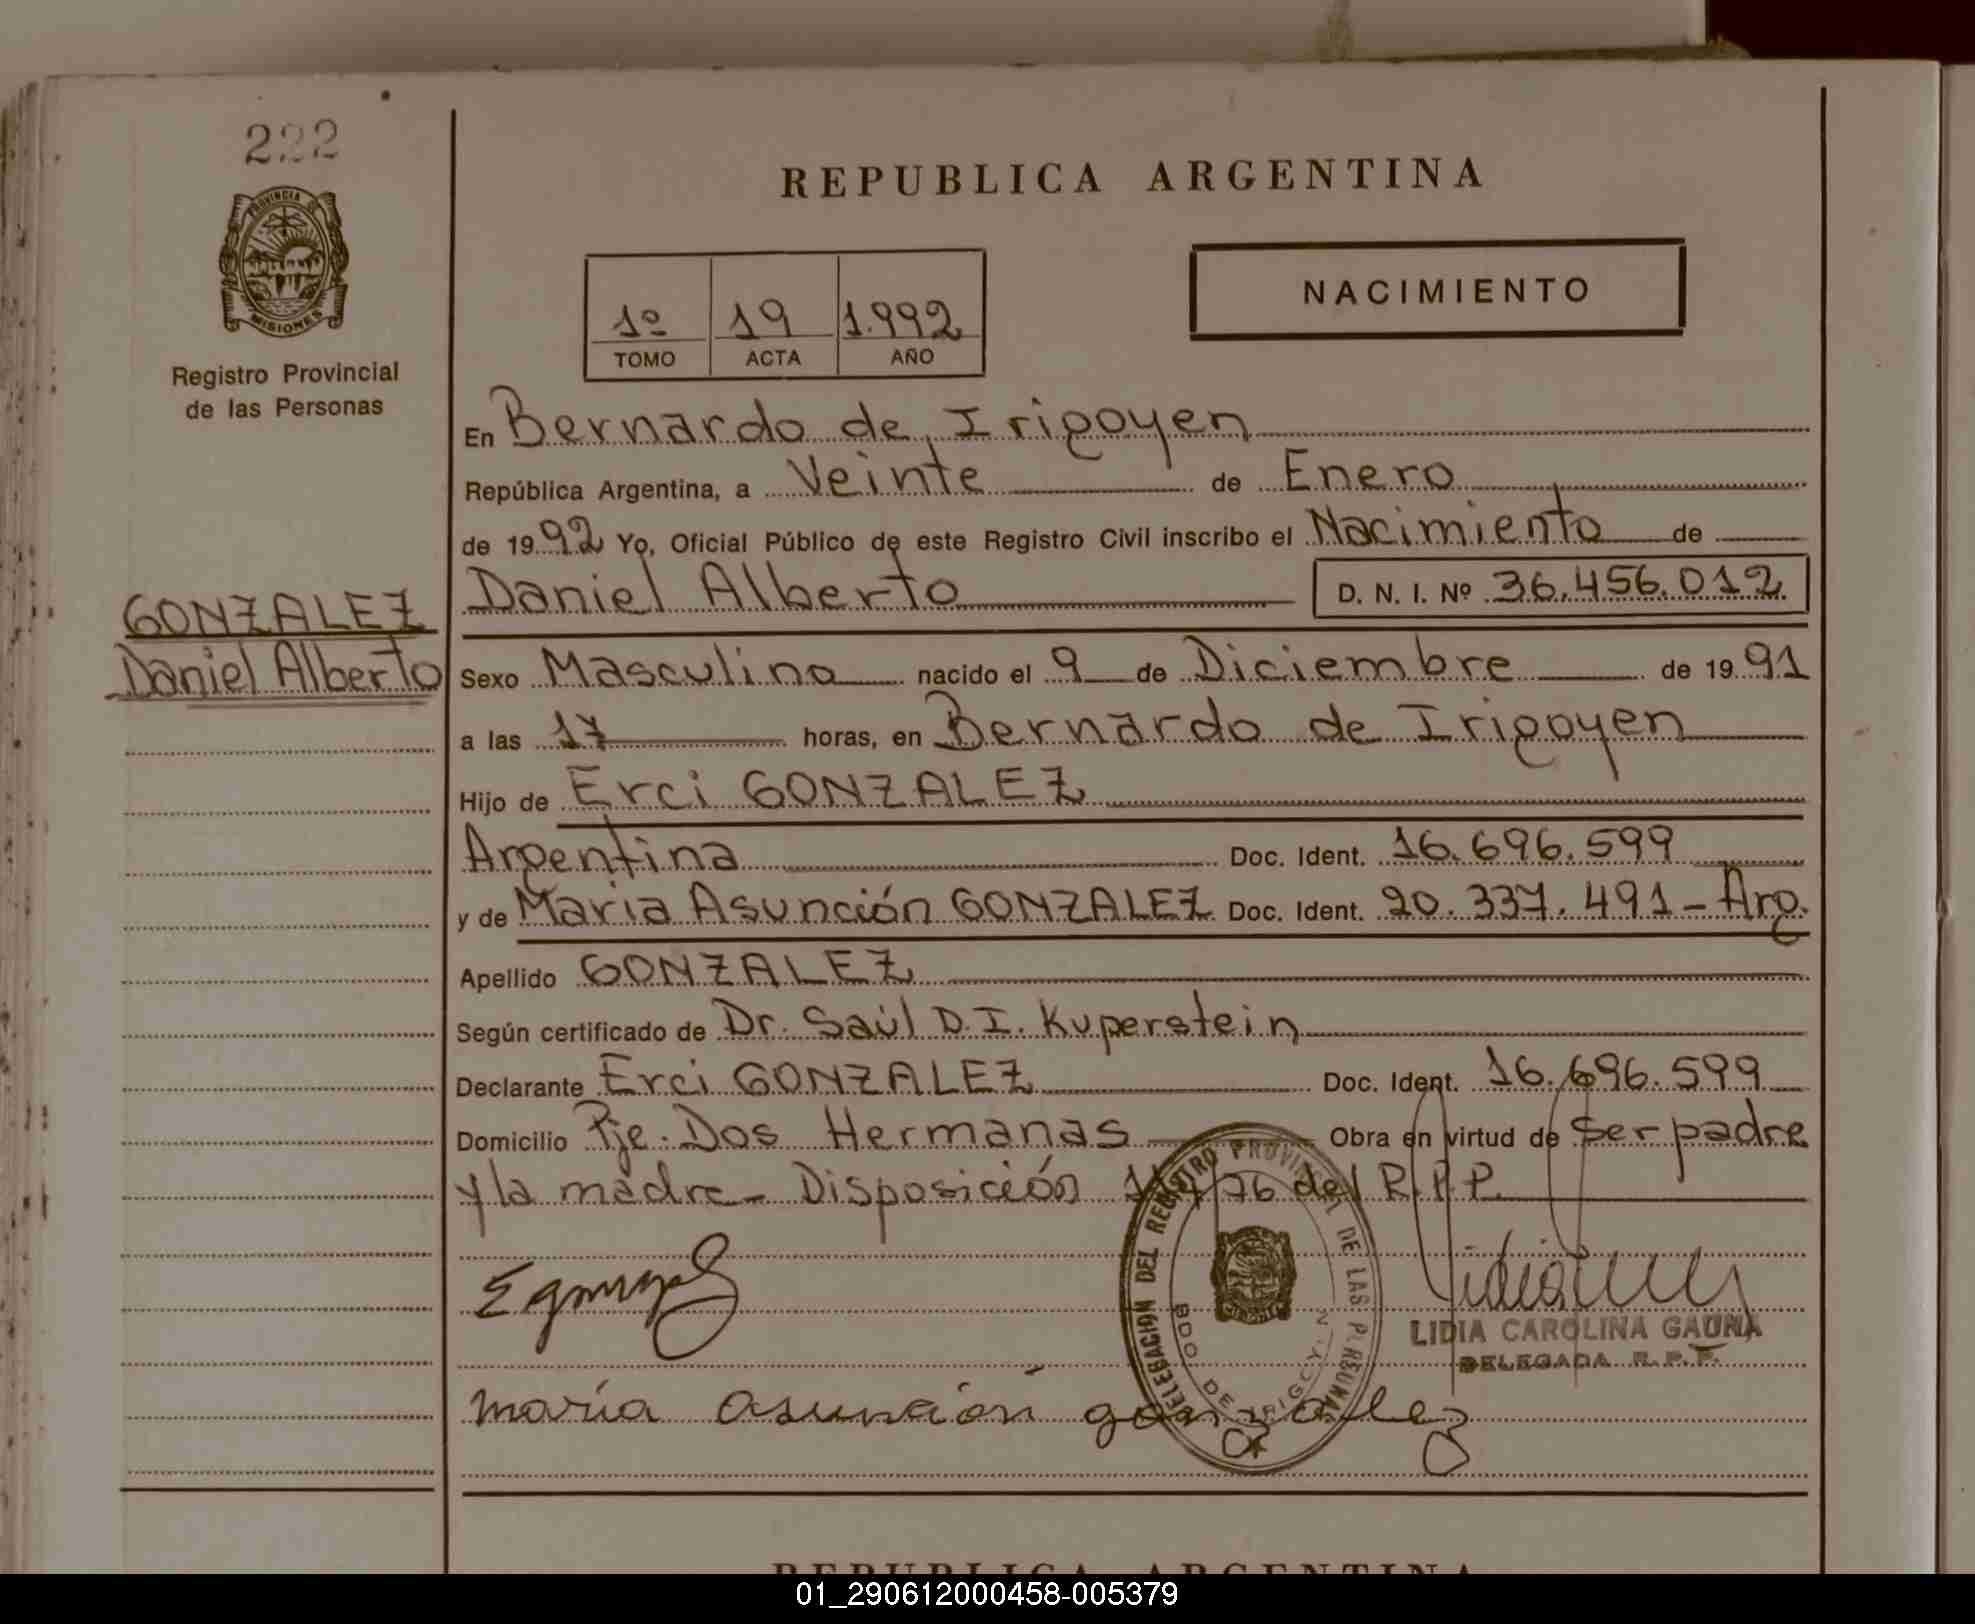 222
REPUBLICA ARGENTINA
PROVINCIA DE
MISIONES
Registro Provincial
de las Personas
NACIMIENTO
1º 19 1.992
TOMO ACTA AÑO
En Bernardo de Irigoyen
República Argentina, a Veinte de Enero
de 1992 Yo, Oficial Público de este Registro Civil inscribo el Nacimiento de
GONZALEZ
Daniel Alberto
Daniel Alberto D. N. I. Nº 36.456.012
Sexo Masculino nacido el 9 de Diciembre de 1991
a las 17 horas, en Bernardo de Irigoyen
Hijo de Erci GONZALEZ
Argentina Doc. Ident. 16.696.599
y de Maria Asunción GONZALEZ Doc. Ident. 20.337.491 - Arg.
Apellido GONZALEZ
Según certificado de Dr. Saúl D. I. Kuperstein
Declarante Erci GONZALEZ Doc. Ident. 16.696.599
Domicilio Pje. Dos Hermanas Obra en virtud de ser padre
y la madre - Disposición /76 del R.P.P.
DELEGACION DEL REGISTRO PROVINCIAL DE LAS PERSONAS
BDO DE IRIGOYEN
LIDIA CAROLINA GAUNA
DELEGADA R.P.P.
maría asunción gonzalez
REPUBLICA ARGENTINA
01_290612000458-005379